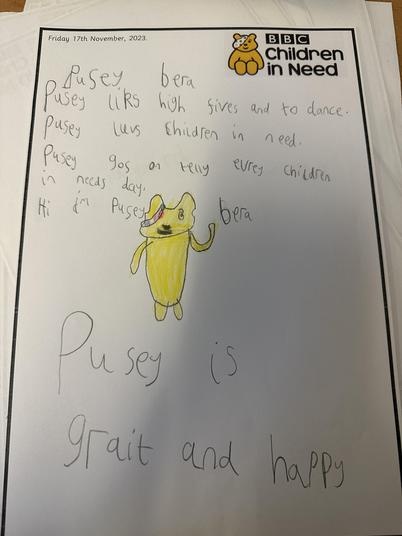 Friday 17th November, 2023.
BBC
Children
in Need
Pusey bera
Pusey liks high fives and to dance.
Pusey luvs Children in need.
Pusey gos on telly evrey children
in needs day.
Hi i'm Pusey bera
Pusey is
grait and happy